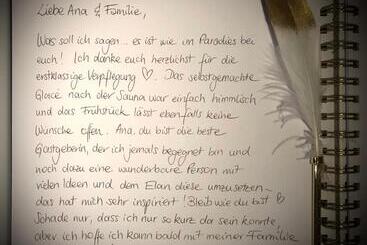 Liebe Ana & Familie,
Was soll ich sagen... es ist wie im Paradies bei
euch! Ich danke euch herzlichst für die
erstklassige Verpflegung ♡. Das selbstgemachte
Glacé nach der Sauna war einfach himmlisch
und das Frühstück lässt ebenfalls keine
Wünsche offen. Ana, du bist die beste
Gastgeberin, der ich jemals begegnet bin und
noch dazu eine wunderbare Person mit
vielen Ideen und dem Elan diese umzusetzen –
das hat mich sehr inspiriert! Bleib wie du bist ♡
Schade nur, dass ich nur so kurz da sein konnte,
aber ich hoffe ich kann bald mit meiner Familie